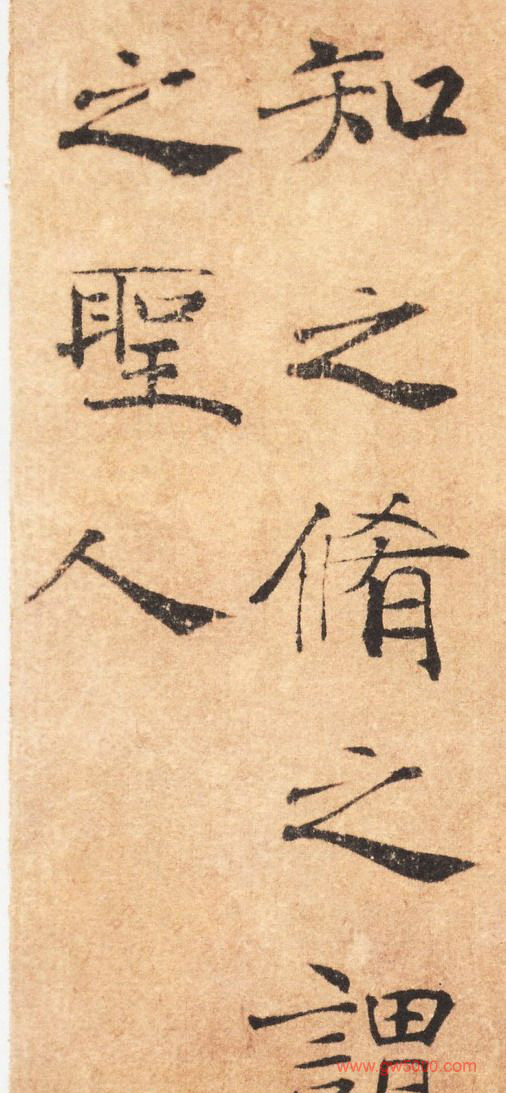 知之脩之謂
之聖人
www.gw5000.com